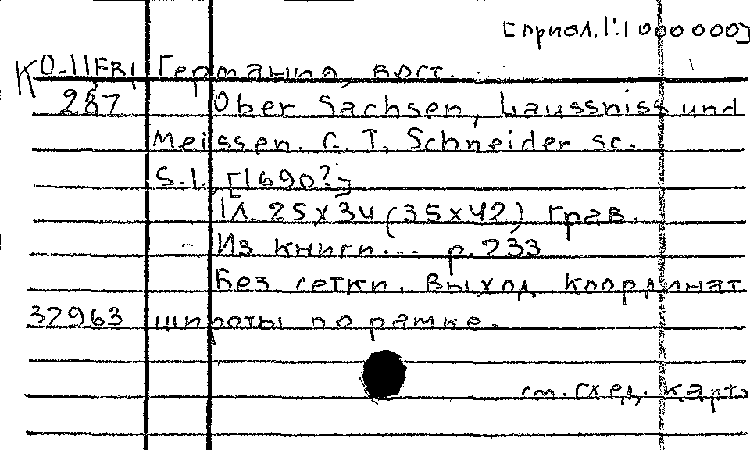 [прибл. 1:1 000 000]
К 0-11ER1 Германия, вост.
287 Ober Sachsen, Laussniss und
Meissen. C. T. Schneider sc.
S.l., [1690?]
1л. 25x34 (35x42) грав.
Из книги... p. 233
Без сетки. Выход координат
37963 широты по рамке.
см. след. карт.